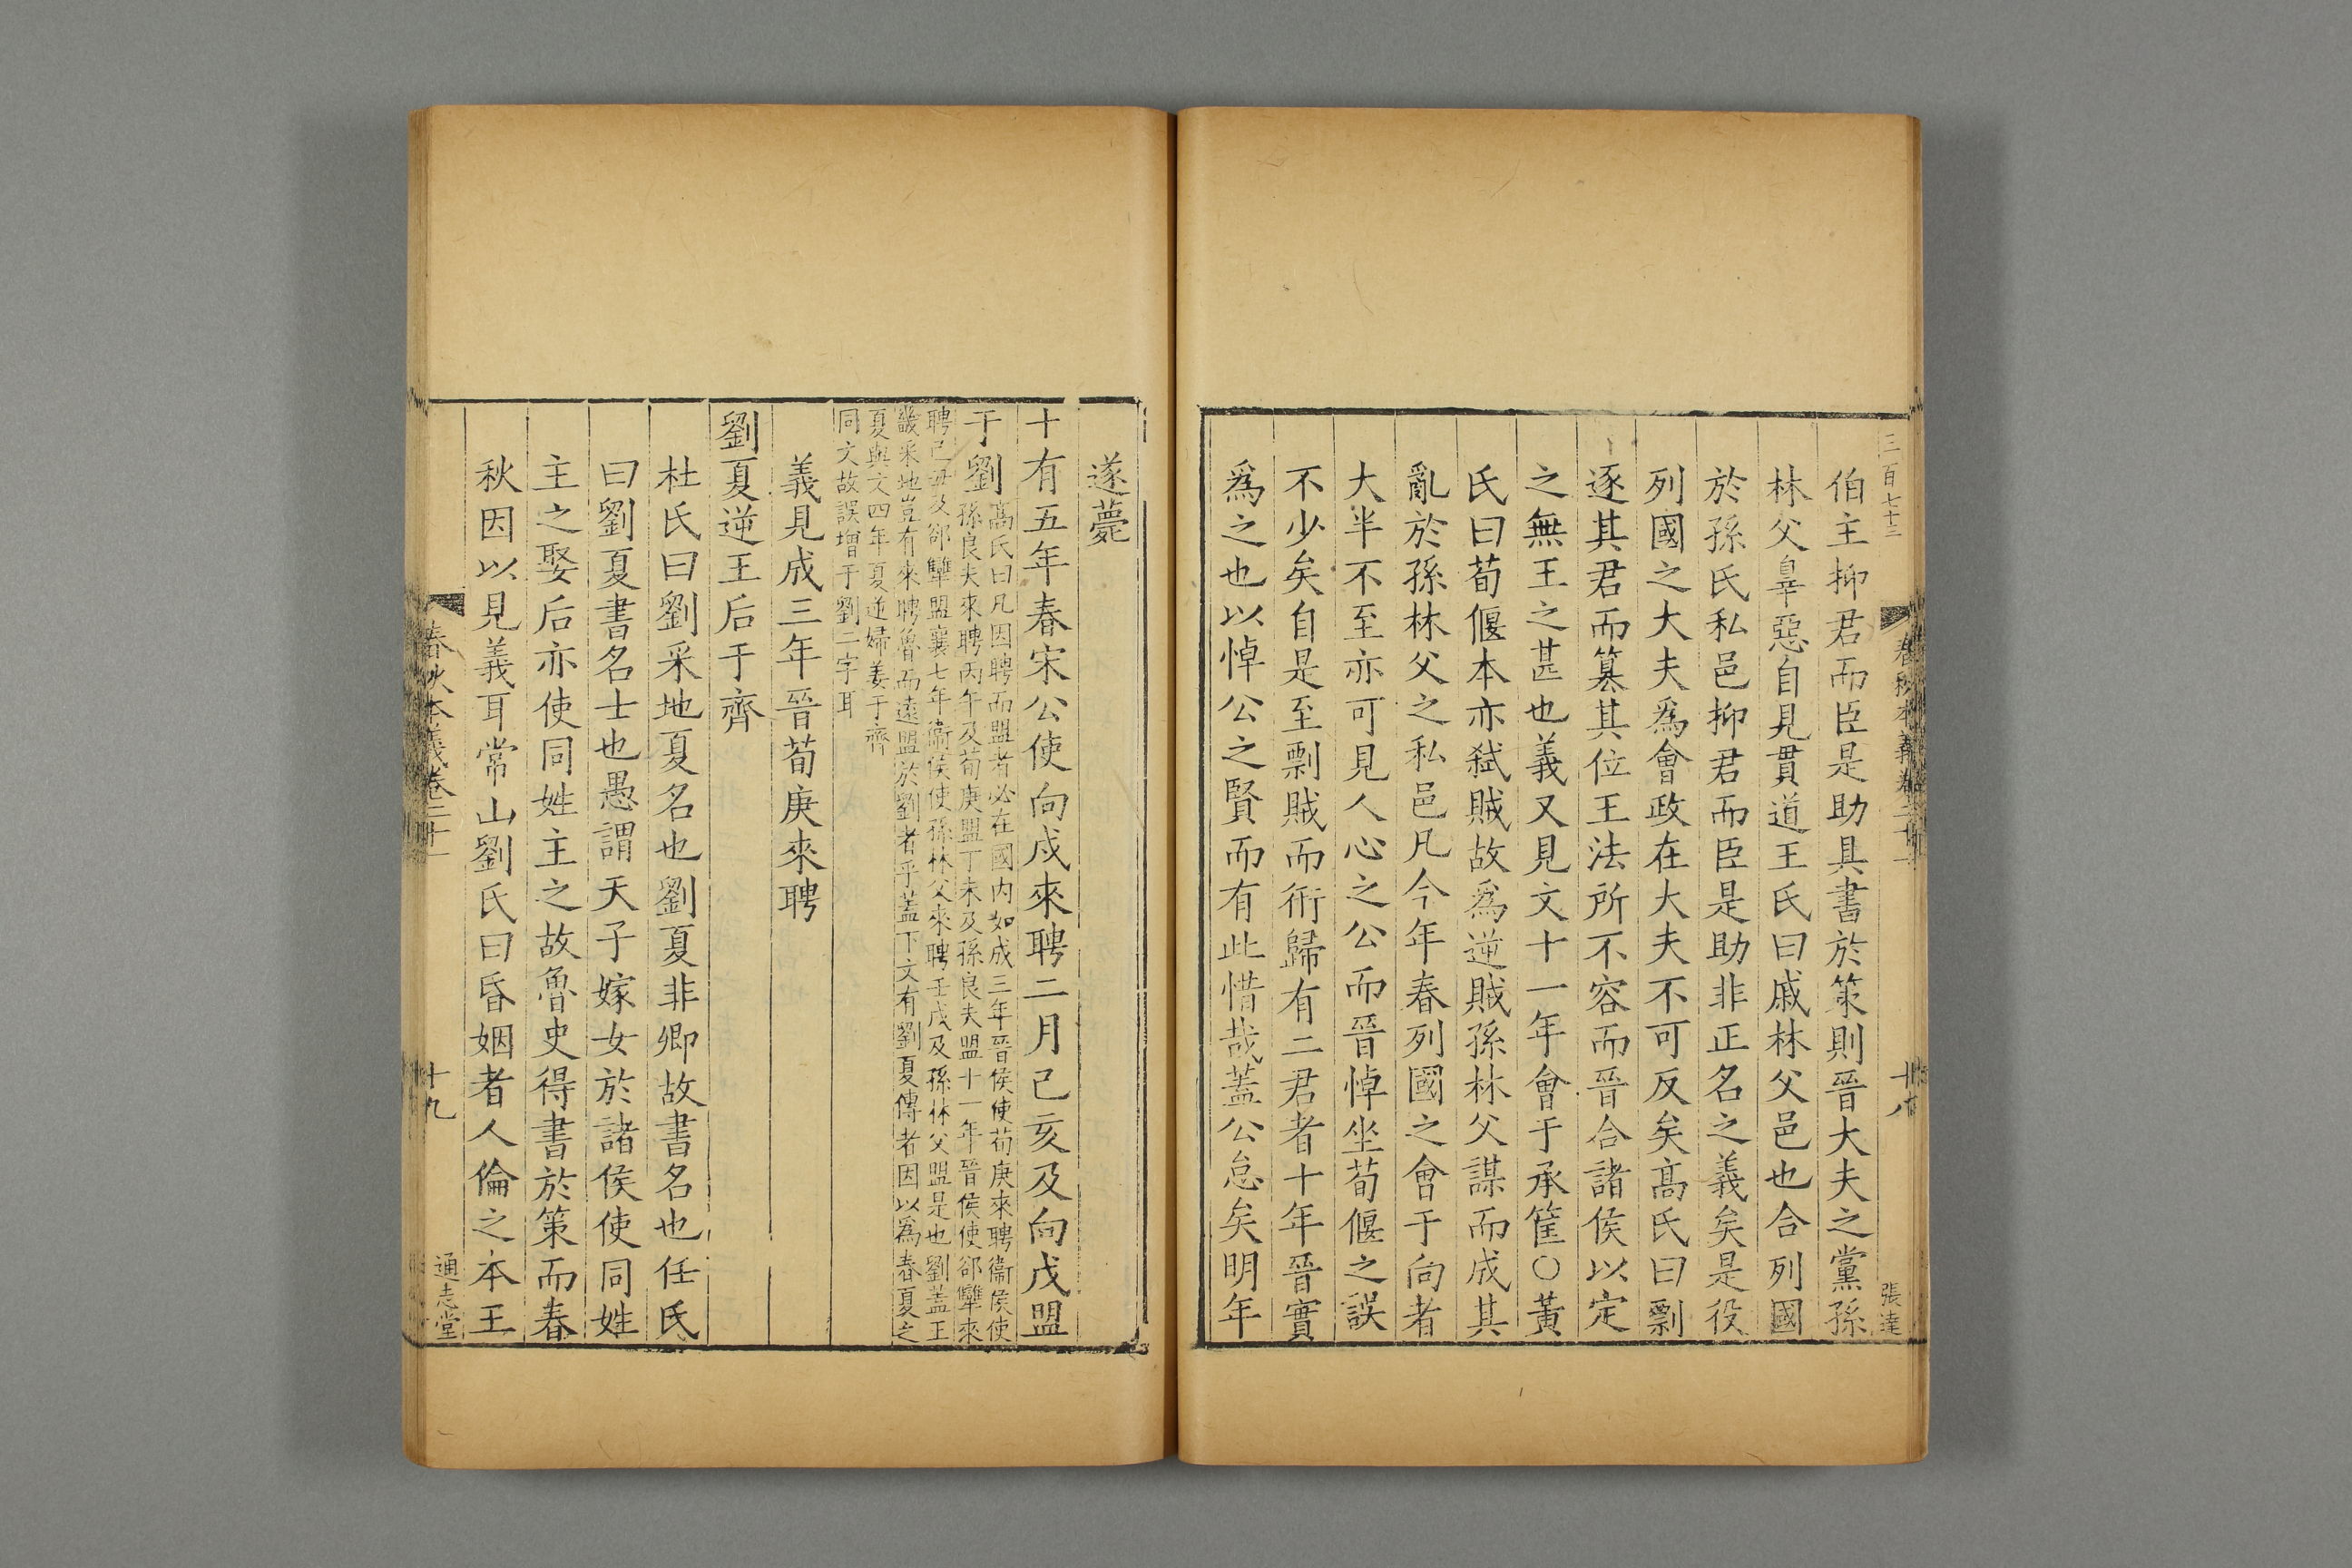 三百七十三
春秋本義卷二十一
十八
張達
伯主抑君而臣是助具書於策則晉大夫之黨孫
林父辠惡自見貫道王氏曰戚林父邑也合列國
於孫氏私邑抑君而臣是助非正名之義矣是役
列國之大夫爲會政在大夫不可反矣髙氏曰剽
逐其君而篡其位王法所不容而晉合諸侯以定
之無王之甚也義又見文十一年會于承筐○黃
氏曰荀偃本亦弑賊故爲逆賊孫林父謀而成其
亂於孫林父之私邑凡今年春列國之會于向者
大半不至亦可見人心之公而晉悼坐荀偃之誤
不少矣自是至剽賊而衎歸有二君者十年晉實
爲之也以悼公之賢而有此惜哉蓋公怠矣明年
遂薨
十有五年春宋公使向戌來聘二月己亥及向戌盟
于劉髙氏曰凡因聘而盟者必在國内如成三年晉侯使荀庚來聘衞侯使
孫良夫來聘丙午及荀庚盟丁未及孫良夫盟十一年晉侯使郤犫來
聘己丑及郤犫盟襄七年衞侯使孫林父來聘壬戌及孫林父盟是也劉蓋王
畿采地豈有來聘魯而遠盟於劉者乎蓋下文有劉夏傳者因以爲春夏之
夏與文四年夏逆婦姜于齊
同文故誤增于劉二字耳
義見成三年晉荀庚來聘
劉夏逆王后于齊
杜氏曰劉采地夏名也劉夏非卿故書名也任氏
曰劉夏書名士也愚謂天子嫁女於諸侯使同姓
主之娶后亦使同姓主之故魯史得書於策而春
秋因以見義耳常山劉氏曰昏姻者人倫之本王
春秋本義卷二十一
十九
通志堂